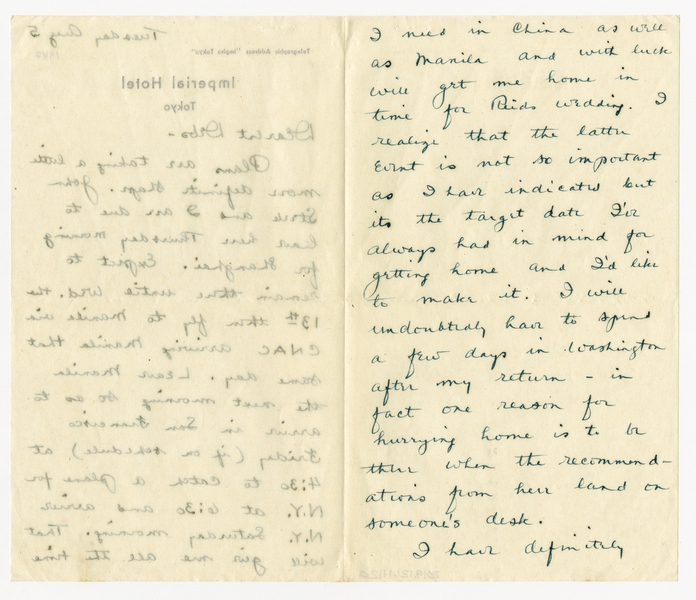 Tuesday Aug 5
Telegraphic Address "Impho Tokyo"
Imperial Hotel
Tokyo
Dearest Debs -
Plans are taking a little
more definite shape. John
and I are due to
leave here Thursday morning
for Shanghai. Expect to
remain there until Wed. the
13th then fly to Manila via
CNAC arriving Manila that
same day. Leave Manila
the next morning so as to
arrive in San Francisco
Friday (if on schedule) at
4:30 to catch a plane for
N.Y. at 6:30 and arrive
N.Y. Saturday morning. That
will give me all the time
I need in China as well
as Manila and with luck
will get me home in
time for Reids wedding. I
realize that the latter
event is not so important
as I have indicated but
its the target date I've
always had in mind for
getting home and I'd like
to make it. I will
undoubtedly have to spend
a few days in Washington
after my return - in
fact one reason for
hurrying home is to be
there when the recommend-
ations from here land on
someone's desk.
I have definitely